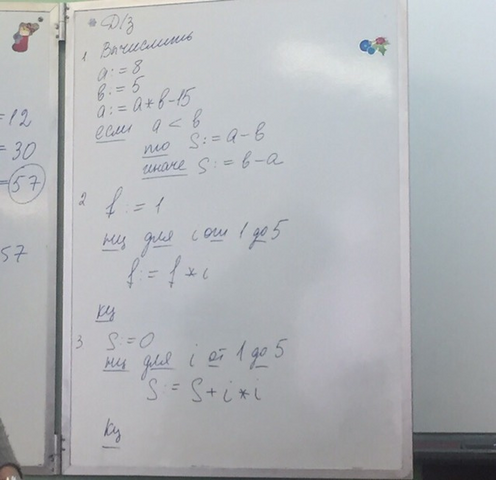 =12
=30
=57
57
* Д/З
1 Вычислить
a:=8
b:=5
a:=a*b-15
если a<b
то S:=a-b
иначе S:=b-a
2 f:=1
нц для i от 1 до 5
f:=f*i
кц
3 S:=0
нц для i от 1 до 5
S:=S+i*i
кц